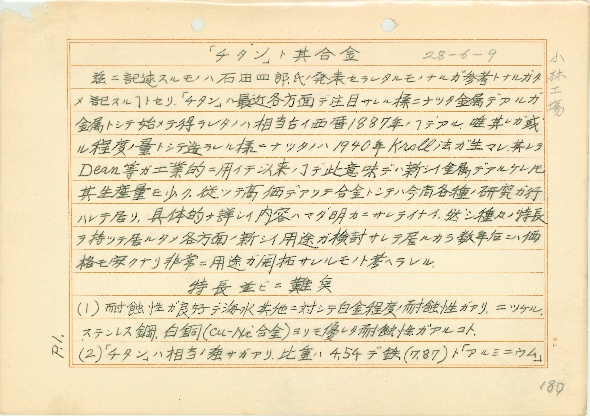 「チタン」ト其合金 28-6-9
小林工場
茲ニ記述スルモノハ石田四郎氏ノ発表セラレタルモノナルガ参考トナルガタ
メ記スルコトセリ.「チタン」ハ最近各方面デ注目サレル様ニナツタ金属デアルガ
金属トシテ始メテ得ラレタノハ相当古イ西暦1887年ノコデアル. 唯其レガ或
ル程度ノ量トシテ造ラレル様ニナツタノハ1940年Kroll法ガ生マレ其レヲ
Dean等ガ工業的ニ用イテ以来ノコデ此意味デハ新シイ金属デアルケレ圧
其生産量モ少ク. 従ツテ高価デアツテ合金トシテハ今尚各種ノ研究ガ行
ハレテ居リ. 具体的ナ詳シイ内容ハマダ明カニサレテイナイ. 然シ種々ノ特長
ヲ持ツテ居ルタメ各方面ノ新シイ用途ガ検討サレテ居ルカラ数年后ニハ価
格モ安クナリ非常ニ用途ガ開拓サレルモノト考ヘラレル.
特長並ビニ難点
(1) 耐蝕性ガ良好デ海水其他ニ対シテ白金程度ノ耐蝕性ガアリ. ニツケル.
ステンレス鋼. 白銅(Cu-Ni合金)ヨリモ優レタ耐蝕性ガアルコト.
(2)「チタン」ハ相当ノ強サガアリ. 比重ハ4.54デ鉄(7.87)ト「アルミニウム」
P.1.
180